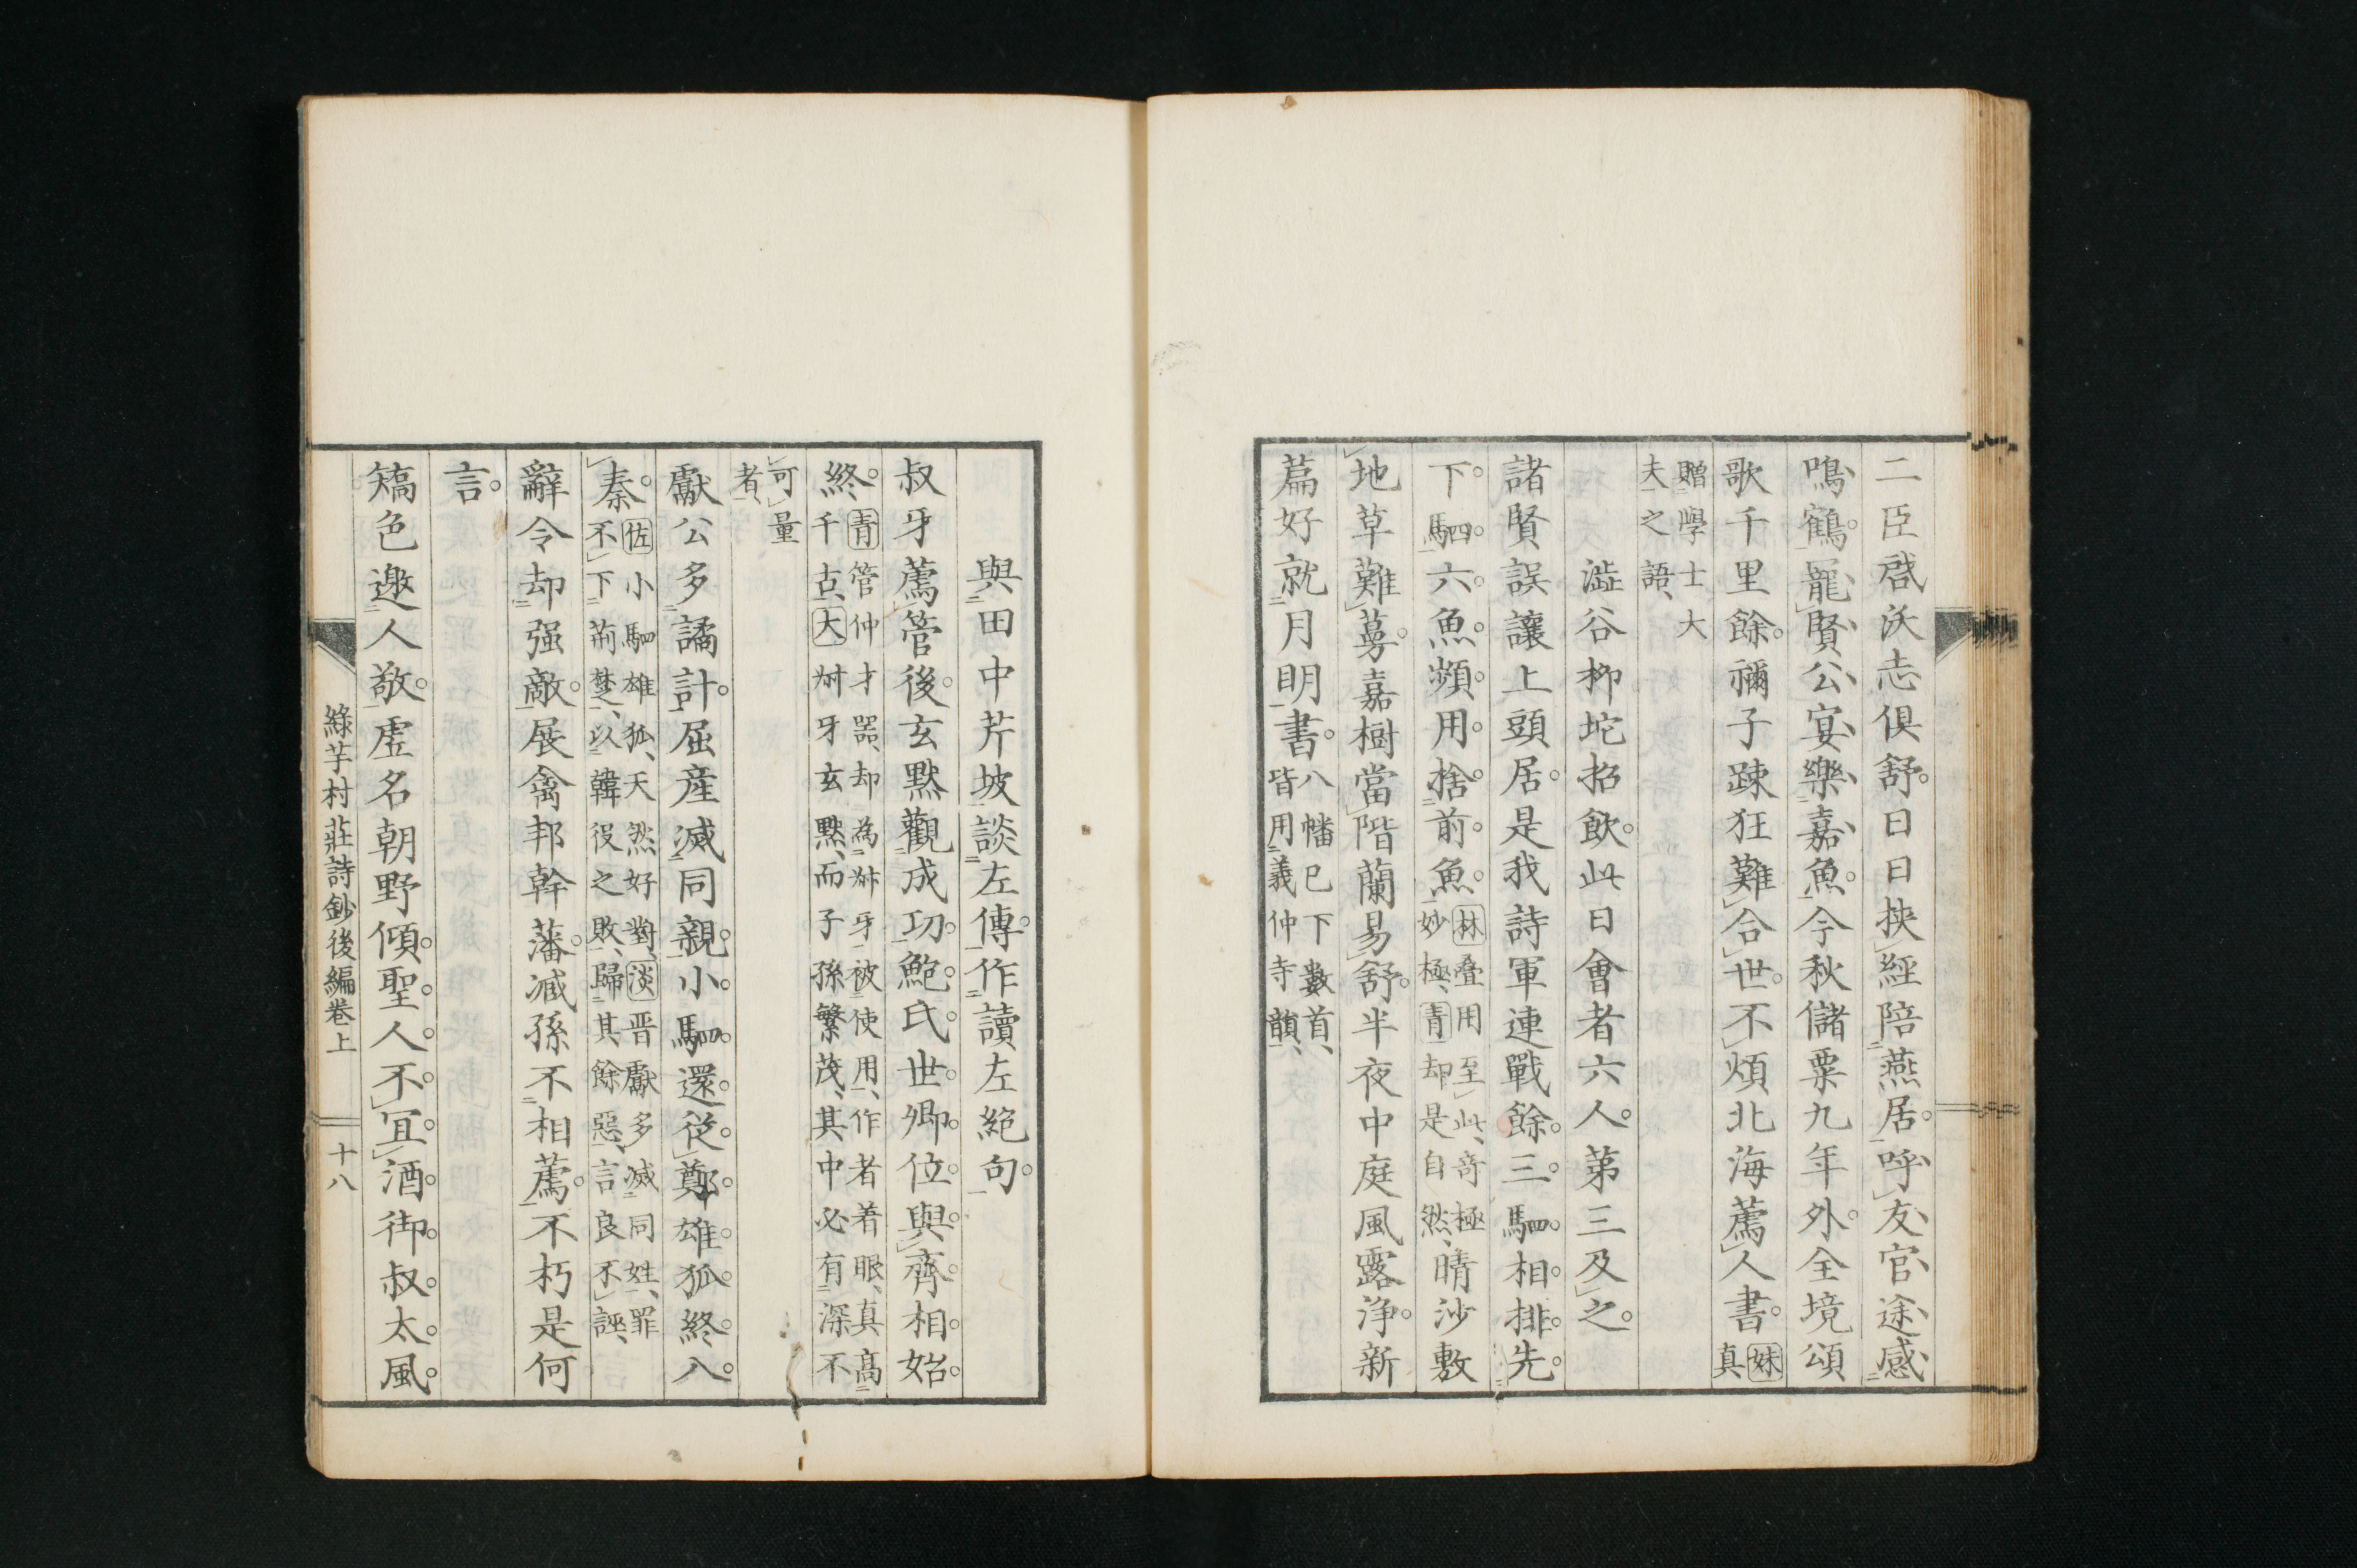 二臣啓沃志倶舒日日挾經陪燕居呼友官途感
鳴鶴寵賢公宴樂嘉魚今秋儲粟九年外全境頌
歌千里餘禰子踈狂難合世不煩北海薦人書妹真
贈學士大
夫之語
澁谷柳坨招飮此日會者六人第三及之
諸賢誤讓上頭居是我詩軍連戰餘三駟相排先
下駟六魚頻用捨前魚林疊用至此奇極
妙極青却是自然晴沙敷
地草難蔓嘉樹當階蘭易舒半夜中庭風露淨新
篇好就月明書八幡已下數首
皆用義仲寺韻
與田中芹坡談左傳作讀左絶句
叔牙薦管後玄默觀成功鮑氏世卿位與齊相始
終青管仲才器却為叔牙被使用作者着眼真高
千古大叔牙玄默而子孫繁茂其中必有深不
可量
者
獻公多譎計屈産滅同親小駟還從鄭雄狐終入
秦佐小駟雄狐天然好對淡晋獻多滅同姓罪
不下荊楚以韓役之敗歸其餘惡言良不誣
辭令却强敵展禽邦幹藩减孫不相薦不朽是何
言
矯色邀人敬虚名朝野傾聖人不宜酒御叔太風
綠芋村莊詩鈔後編卷上
十八